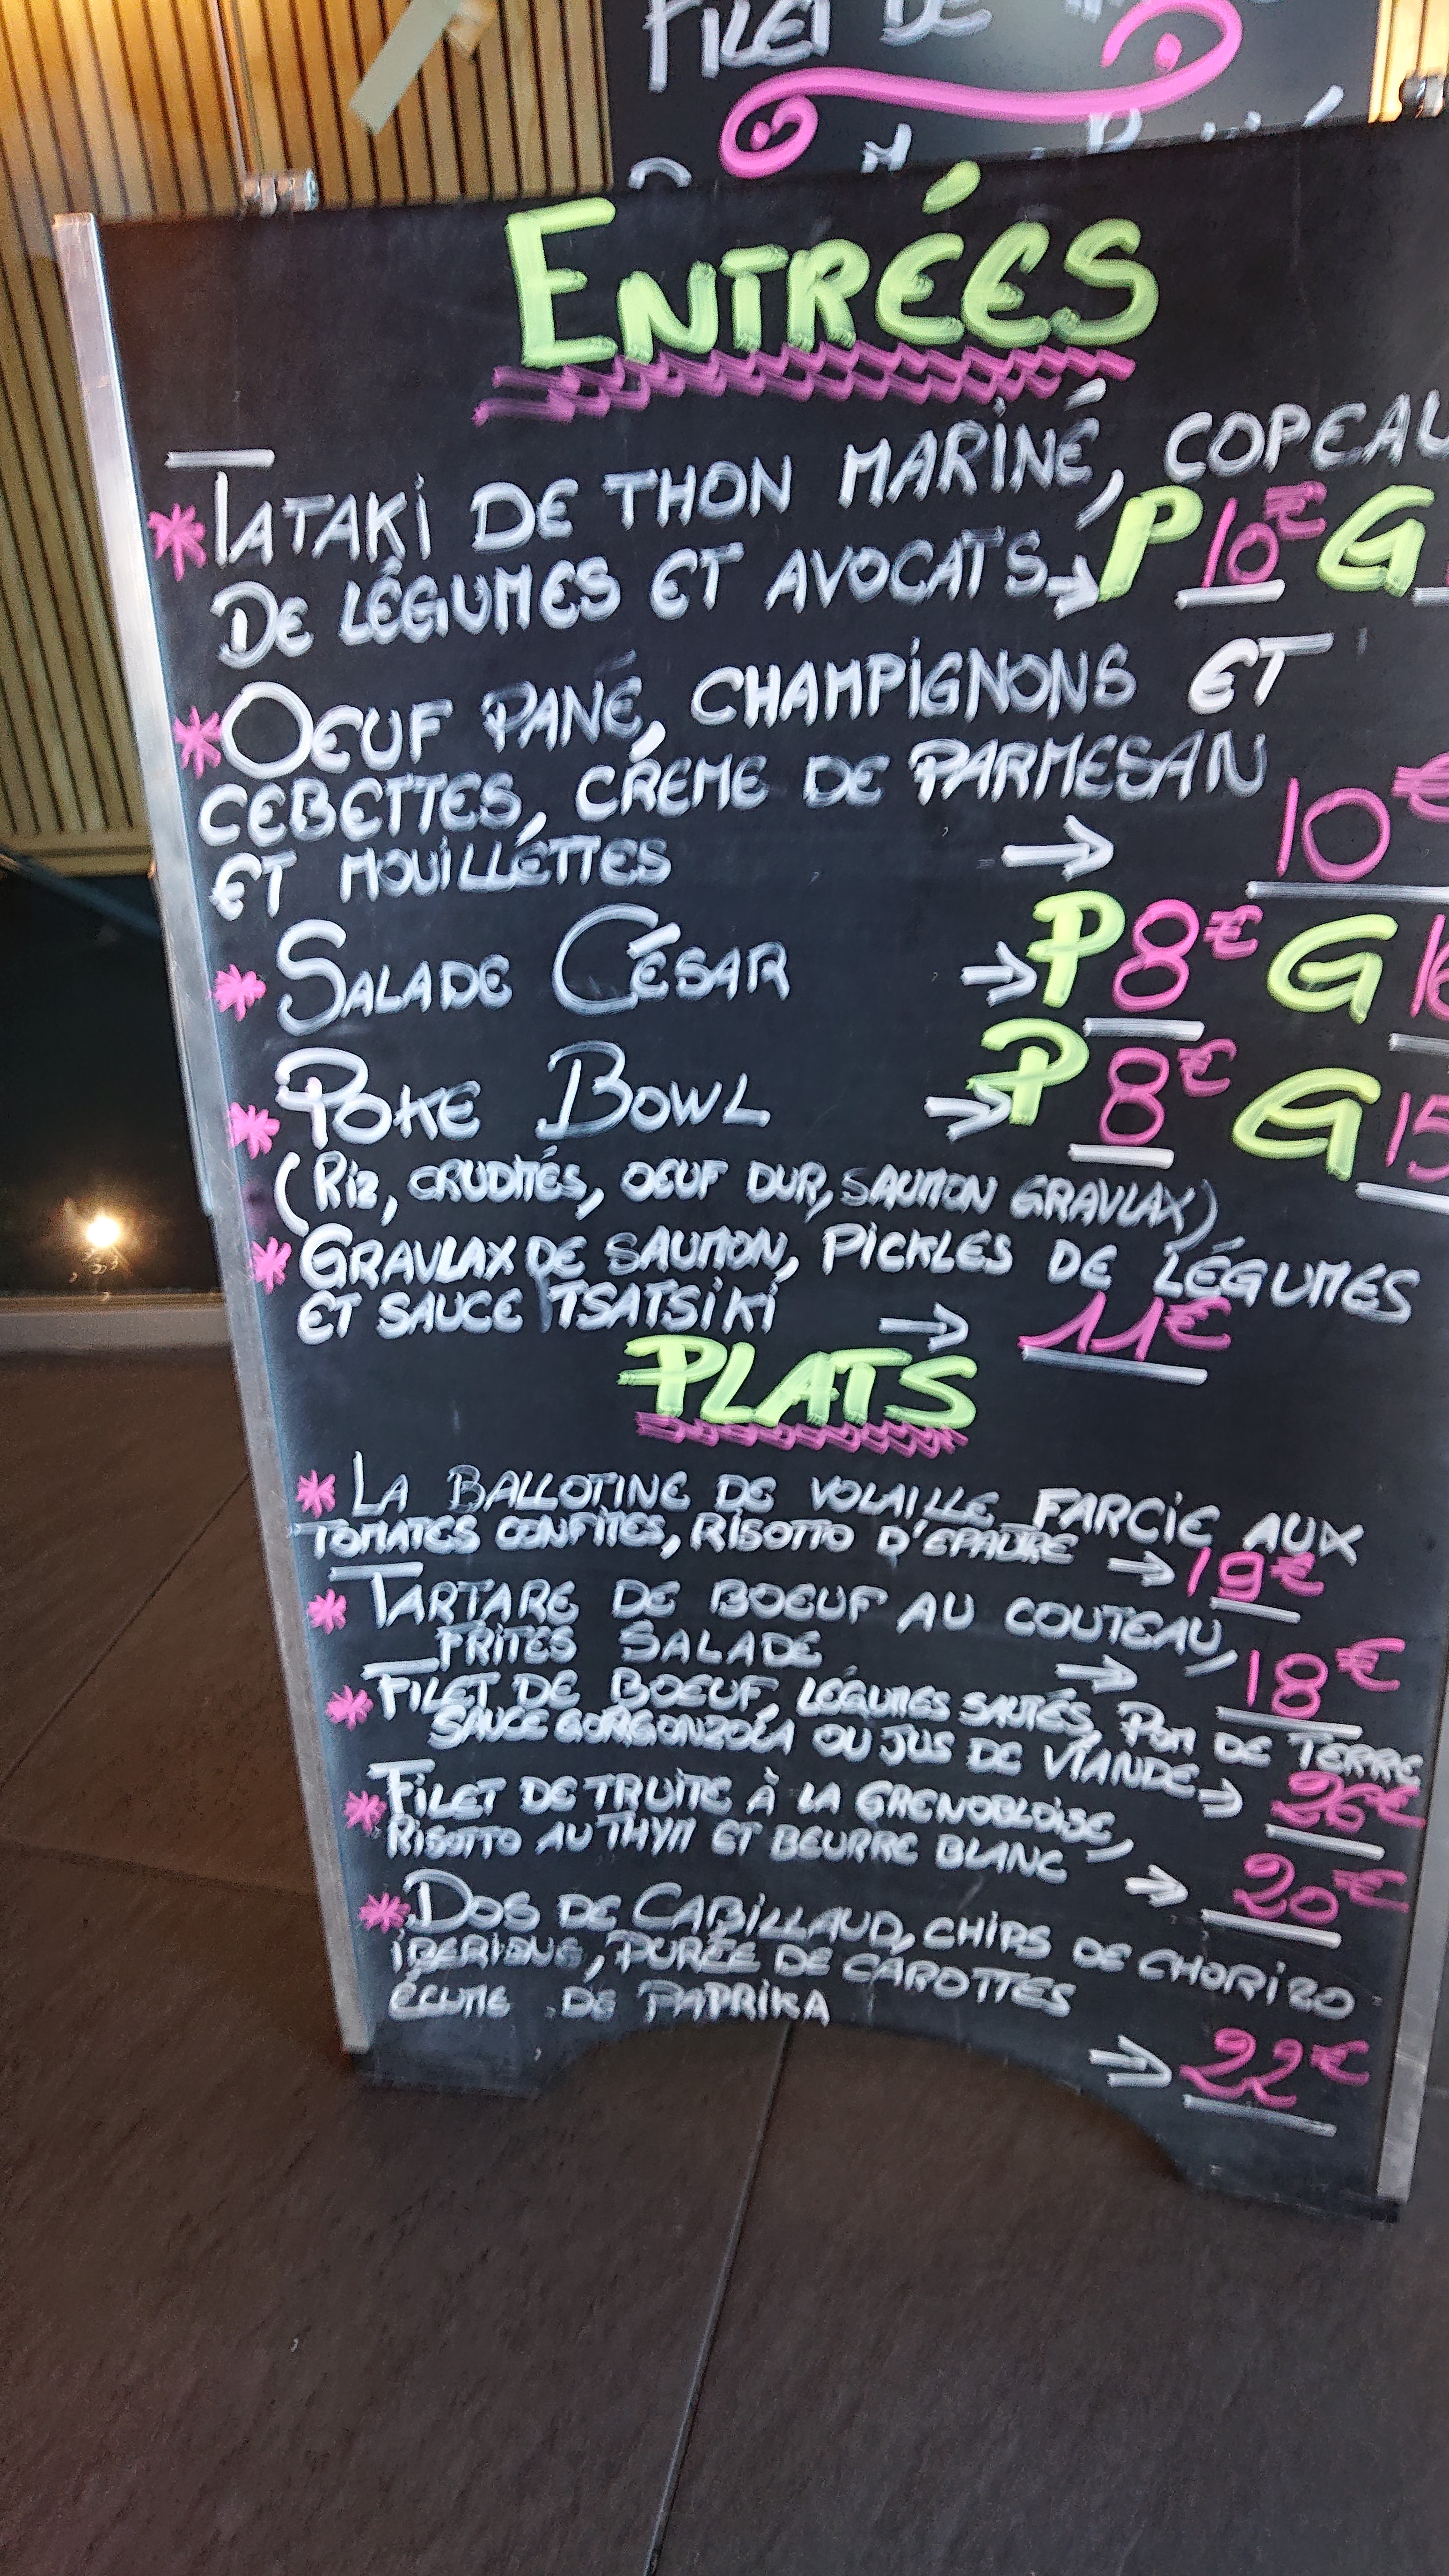 FILET DE
ENTRÉES
* TATAKI DE THON MARINÉ, COPEAU
DE LÉGUMES ET AVOCATS → P 10€ G
* OEUF PANÉ, CHAMPIGNONS ET
CEBETTES, CRÈME DE PARMESAN
ET MOUILLÉTTES → 10€
* SALADE CÉSAR → P 8€ G 16
* POKE BOWL → P 8€ G 15
(RIZ, CRUDITÉS, OEUF DUR, SAUMON GRAVLAX)
* GRAVLAX DE SAUMON, PICKLES DE LÉGUMES
ET SAUCE TSATSIKI → 11€
PLATS
* LA BALLOTINE DE VOLAILLE FARCIE AUX
TOMATES CONFITES, RISOTTO D'EPAUTRE → 19€
* TARTARE DE BOEUF AU COUTEAU,
FRITES SALADE → 18€
* FILET DE BOEUF, LÉGUMES SAUTÉS, POM DE TERRE
SAUCE GORGONZOLA OU JUS DE VIANDE → 26€
* FILET DE TRUITE À LA GRENOBLOISE,
RISOTTO AU THYM ET BEURRE BLANC → 20€
* DOS DE CABILLAUD, CHIPS DE CHORIZO
IBERIQUE, PURÉE DE CAROTTES
ÉCUME DE PAPRIKA
→ 22€